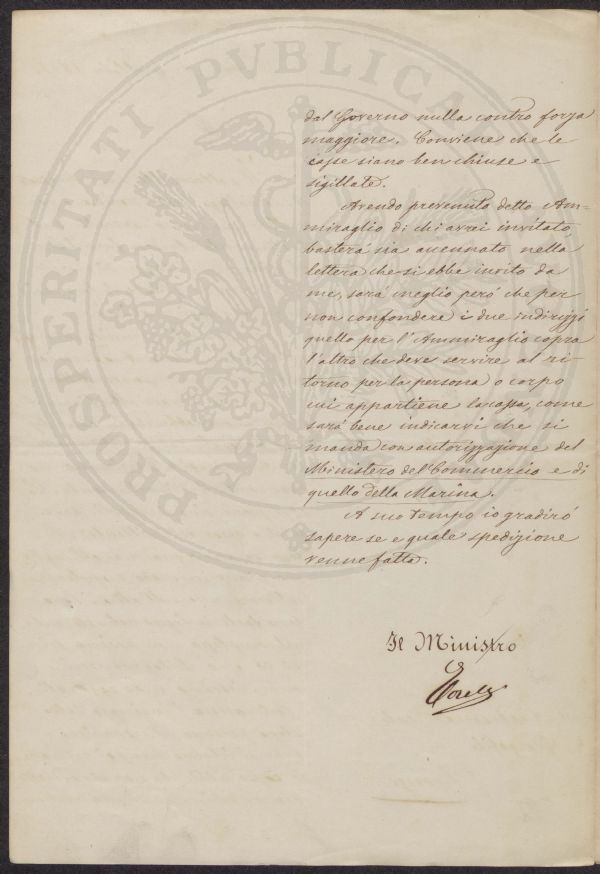 PROSPERITATI PVBLICAE
dal Governo nulla contro forza
maggiore. Conviene che le
casse siano ben chiuse e
sigillate.
Avendo prevenuto detto Am=
miraglio di chi avrei invitato,
basterà sia accennato nella
lettera che si ebbe invito da
me, sarà meglio però che per
non confondere i due indirizzi
quello per l'Ammiraglio copra
l'altro che deve servire al ri-
torno per la persona o corpo
cui appartiene la cassa, come
sarà bene indicarvi che si
manda con autorizzazione del
Ministero del Commercio e di
quello della Marina.
A suo tempo io gradirò
sapere se e quale spedizione
venne fatta.
Il Ministro
Torelli